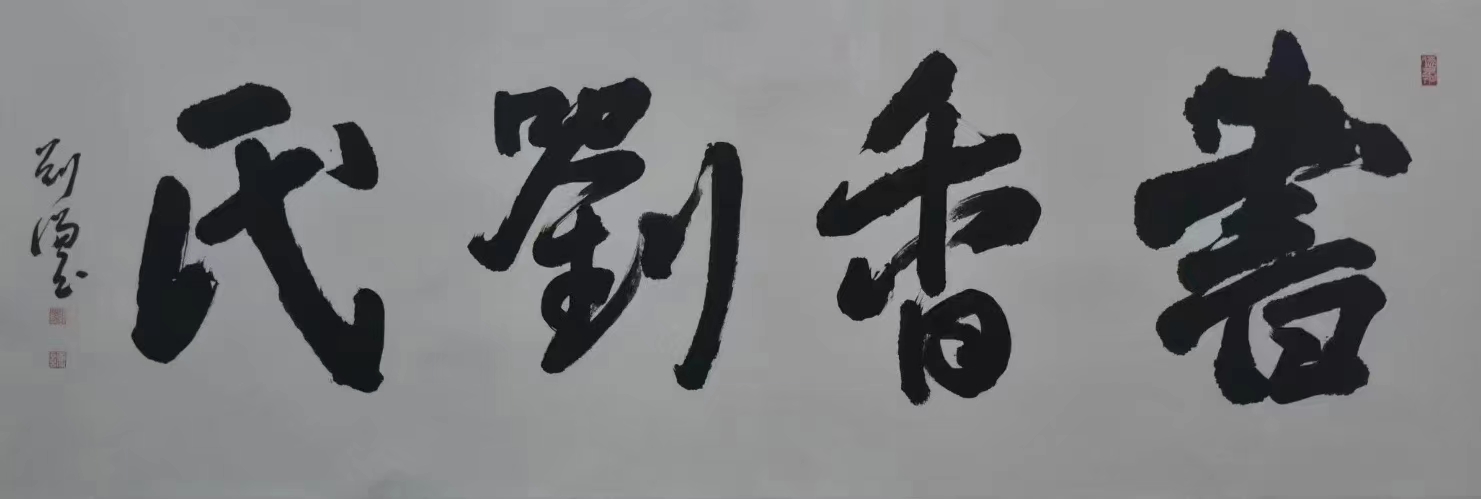 書香劉氏